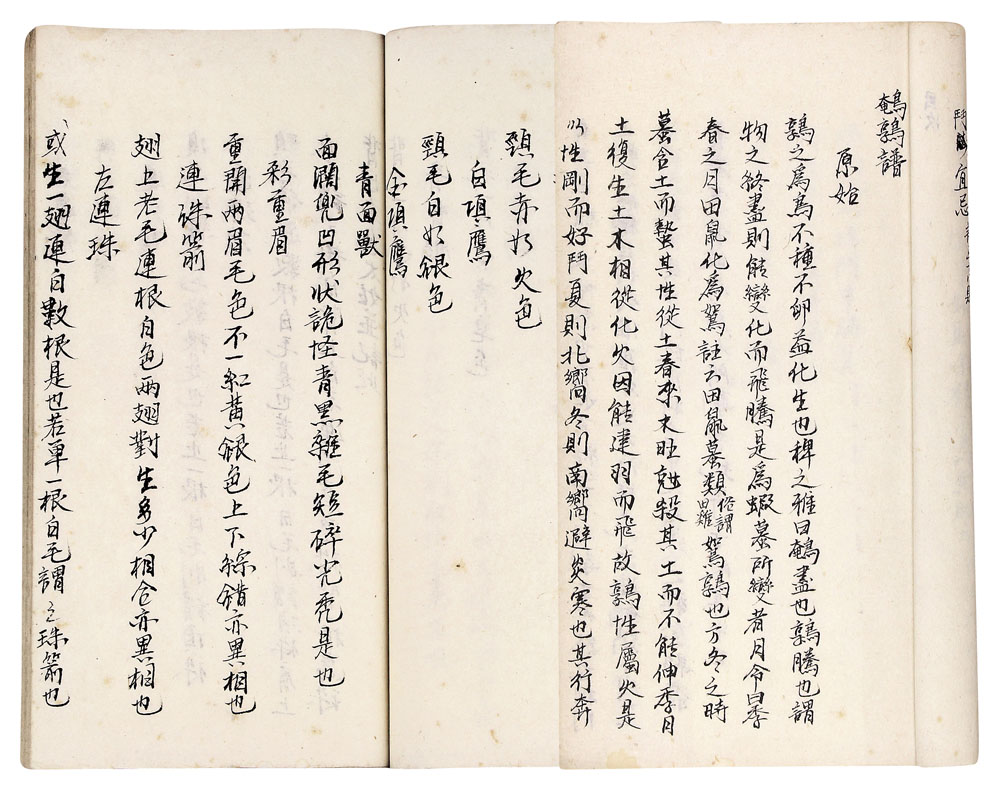 鵪鶉譜
原始
鶉之為鳥不種不卵益化生也稗之雅曰鵪盡也鶉騰也謂
物之終盡則能變化而飛騰是為蝦蟇所變者月令曰季
春之月田鼠化為鴽註云田鼠蟇類俗謂田雞鴽鶉也方冬之時
蟇含土而蟄其性從土春來木旺尅殺其土而不能伸季月
土復生土木相從化火因能建羽而飛故鶉性屬火是
以性剛而好鬥夏則北嚮冬則南嚮避炎寒也其行奔
頸毛赤如火色
白項鷹
頸毛白如銀色
金項鷹
青面獸
面闊兜凹形狀詭怪青黑雜毛短碎光禿是也
彩重眉
重開兩眉毛色不一紅黃銀色上下綜錯亦異相也
連珠箭
翅上老毛連根白色兩翅對生多少相仝亦異相也
左連珠
或生一翅連白數根是也若單一根白毛謂之珠箭也